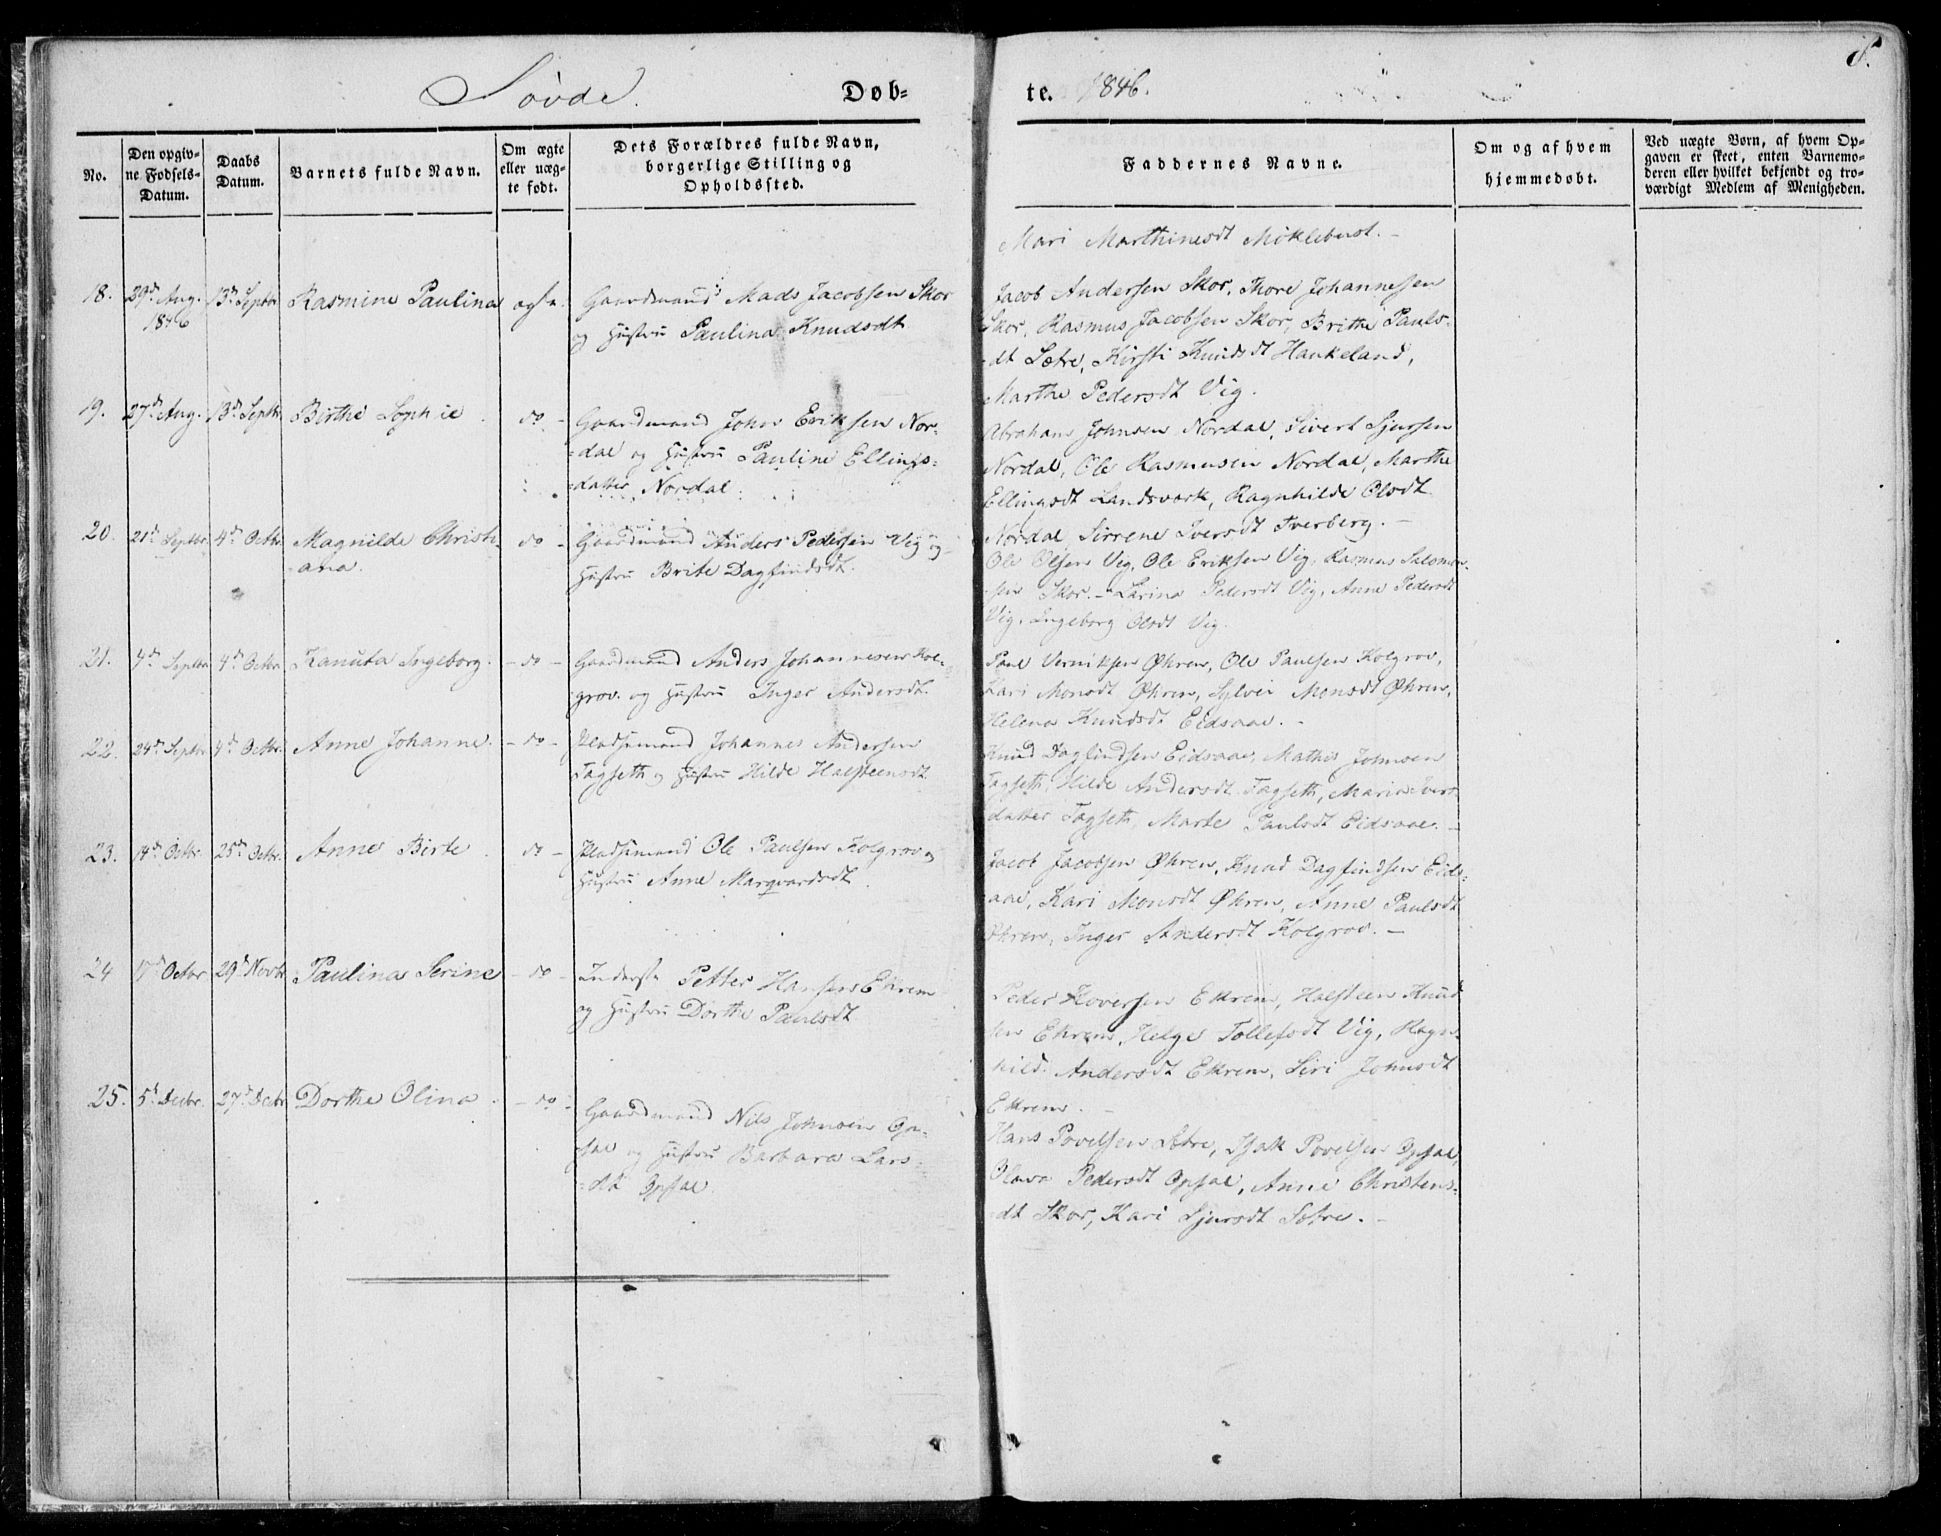 Søvde. Døb=
te. 1846.
8.
No.
Den opgiv-
ne Fødsels-
Datum.
Daabs
Datum.
Barnets fulde Navn.
Om ægte
eller uæg-
te født.
Dets Forældres fulde Navn,
borgerlige Stilling og
Opholdssted.
Faddernes Navne.
Om og af hvem
hjemmedøbt.
Ved uægte Børn, af hvem Op-
gaven er skeet, enten Barnemo-
deren eller hvilket bekjendt og tro-
værdigt Medlem af Menigheden.
Mari Marthinesdt Möklebust. -
18. 29d Aug. 1846 13d Septbr Rasmine Paulina ægte.
Gaardmand Mads Jacobsen Skor
og Hustru Paulina Knudsdt
Jacob Andersen Skor, Thore Johannesen
Skor, Rasmus Jacobsen Skor, Brithe Pauls-
dt Sætre, Kirsti Knudsdt Haukeland,
Marthe Pedersdt Vig.
19. 27d Aug. 13d Septbr Birthe Sophie do -
Gaardmand John Eriksen Nor-
=dal og Hustru Pauline Ellings=
=datter Nordal.
Abraham Johnsen Nordal, Sivert Sjursen
Nordal, Ole Rasmusen Nordal, Marthe
Ellingsdt Landsverk, Ragnhilde Olsdt
Nordal Sirrene Iversdt Tverberg. -
20. 21d Septbr 4d Octbr Magnilde Christi-
-ana. do -
Gaardmand Anders Pedersen Vig og
Hustru Brite Dagfindsdt.
Ole Olsen Vig, Ole Eriksen Vig, Rasmus Salomon-
sen Skor. - Larina Pedersdt Vig, Anne Pedersdt
Vig, Ingeborg Olsdt Vig.
21. 4d Septbr 4d Octbr Kanuta Ingeborg. - do -
Gaardmand Anders Johannesen Kol-
grov. og Hustru Inger Andersdt.
Paul Verniksen Øhren, Ole Paulsen Kolgrov,
Kari Monsdt Øhren, Sylvei Monsdt Øhren,
Helena Knudsdt Eidsaae. -
22. 24d Septbr 4d Octbr. Anne Johanne. - do -
Pladsemand Johannes Andersen
Tagseth og Hustru Hilde Halsteensdt
Knud Dagfindsen Eidsaae, Mathis Johnsen
Tagseth, Hilde Andersdt Tagseth, Maria Ivers
datter Tagseth, Marte Paulsdt Eidsaae. -
23. 14d Octbr. 25d Octbr. Anne Birte. do -
Pladsemand Ole Paulsen Kolgrov og
Hustru Anne Marqvardsdt.
Jacob Jacobsen Øhren, Knud Dagfindsen Eids-
aae, Kari Monsdt Øhren, Anne Paulsdt
Øhren, Inger Andersdt Kolgrov. -
24 17d Octbr 29d Novbr Paulina Serine - do -
Inderste Petter Hansen Ekrem
og Hustru Dorthe Paulsdt
Peder Hoversen Ekrem, Halsteen Knud
sen Ekrem, Helge Tollefsdt Vig, Ragn-
hild Andersdt Ekrem, Siri Johnsdt
Ekrem. -
25. 5d Decbr. 27d Decbr Dorthe Olina. - do -
Gaardmand Nils Johnsen Op-
sal og Hustru Barbara Lars
=dt Opsal.
Hans Povelsen Sætre, Isak Povelsen Opsal,
Olava Pedersdt Opsal, Anne Christens-
dt Skor, Kari Sjursdt Sætre. -